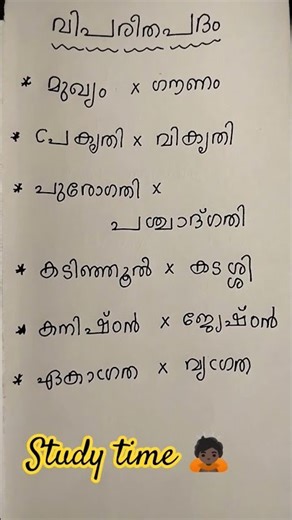 വിപരീതപദം
* മുഖ്യം x ഗൗണം
* പ്രകൃതി x വികൃതി
* പുരോഗതി x
പശ്ചാദ്ഗതി
* കടിഞ്ഞൂൽ x കടശ്ശി
* കനിഷ്ഠൻ x ജ്യേഷ്ഠൻ
* ഏകാഗ്രത x വ്യഗ്രത
Study time 🙇🏿